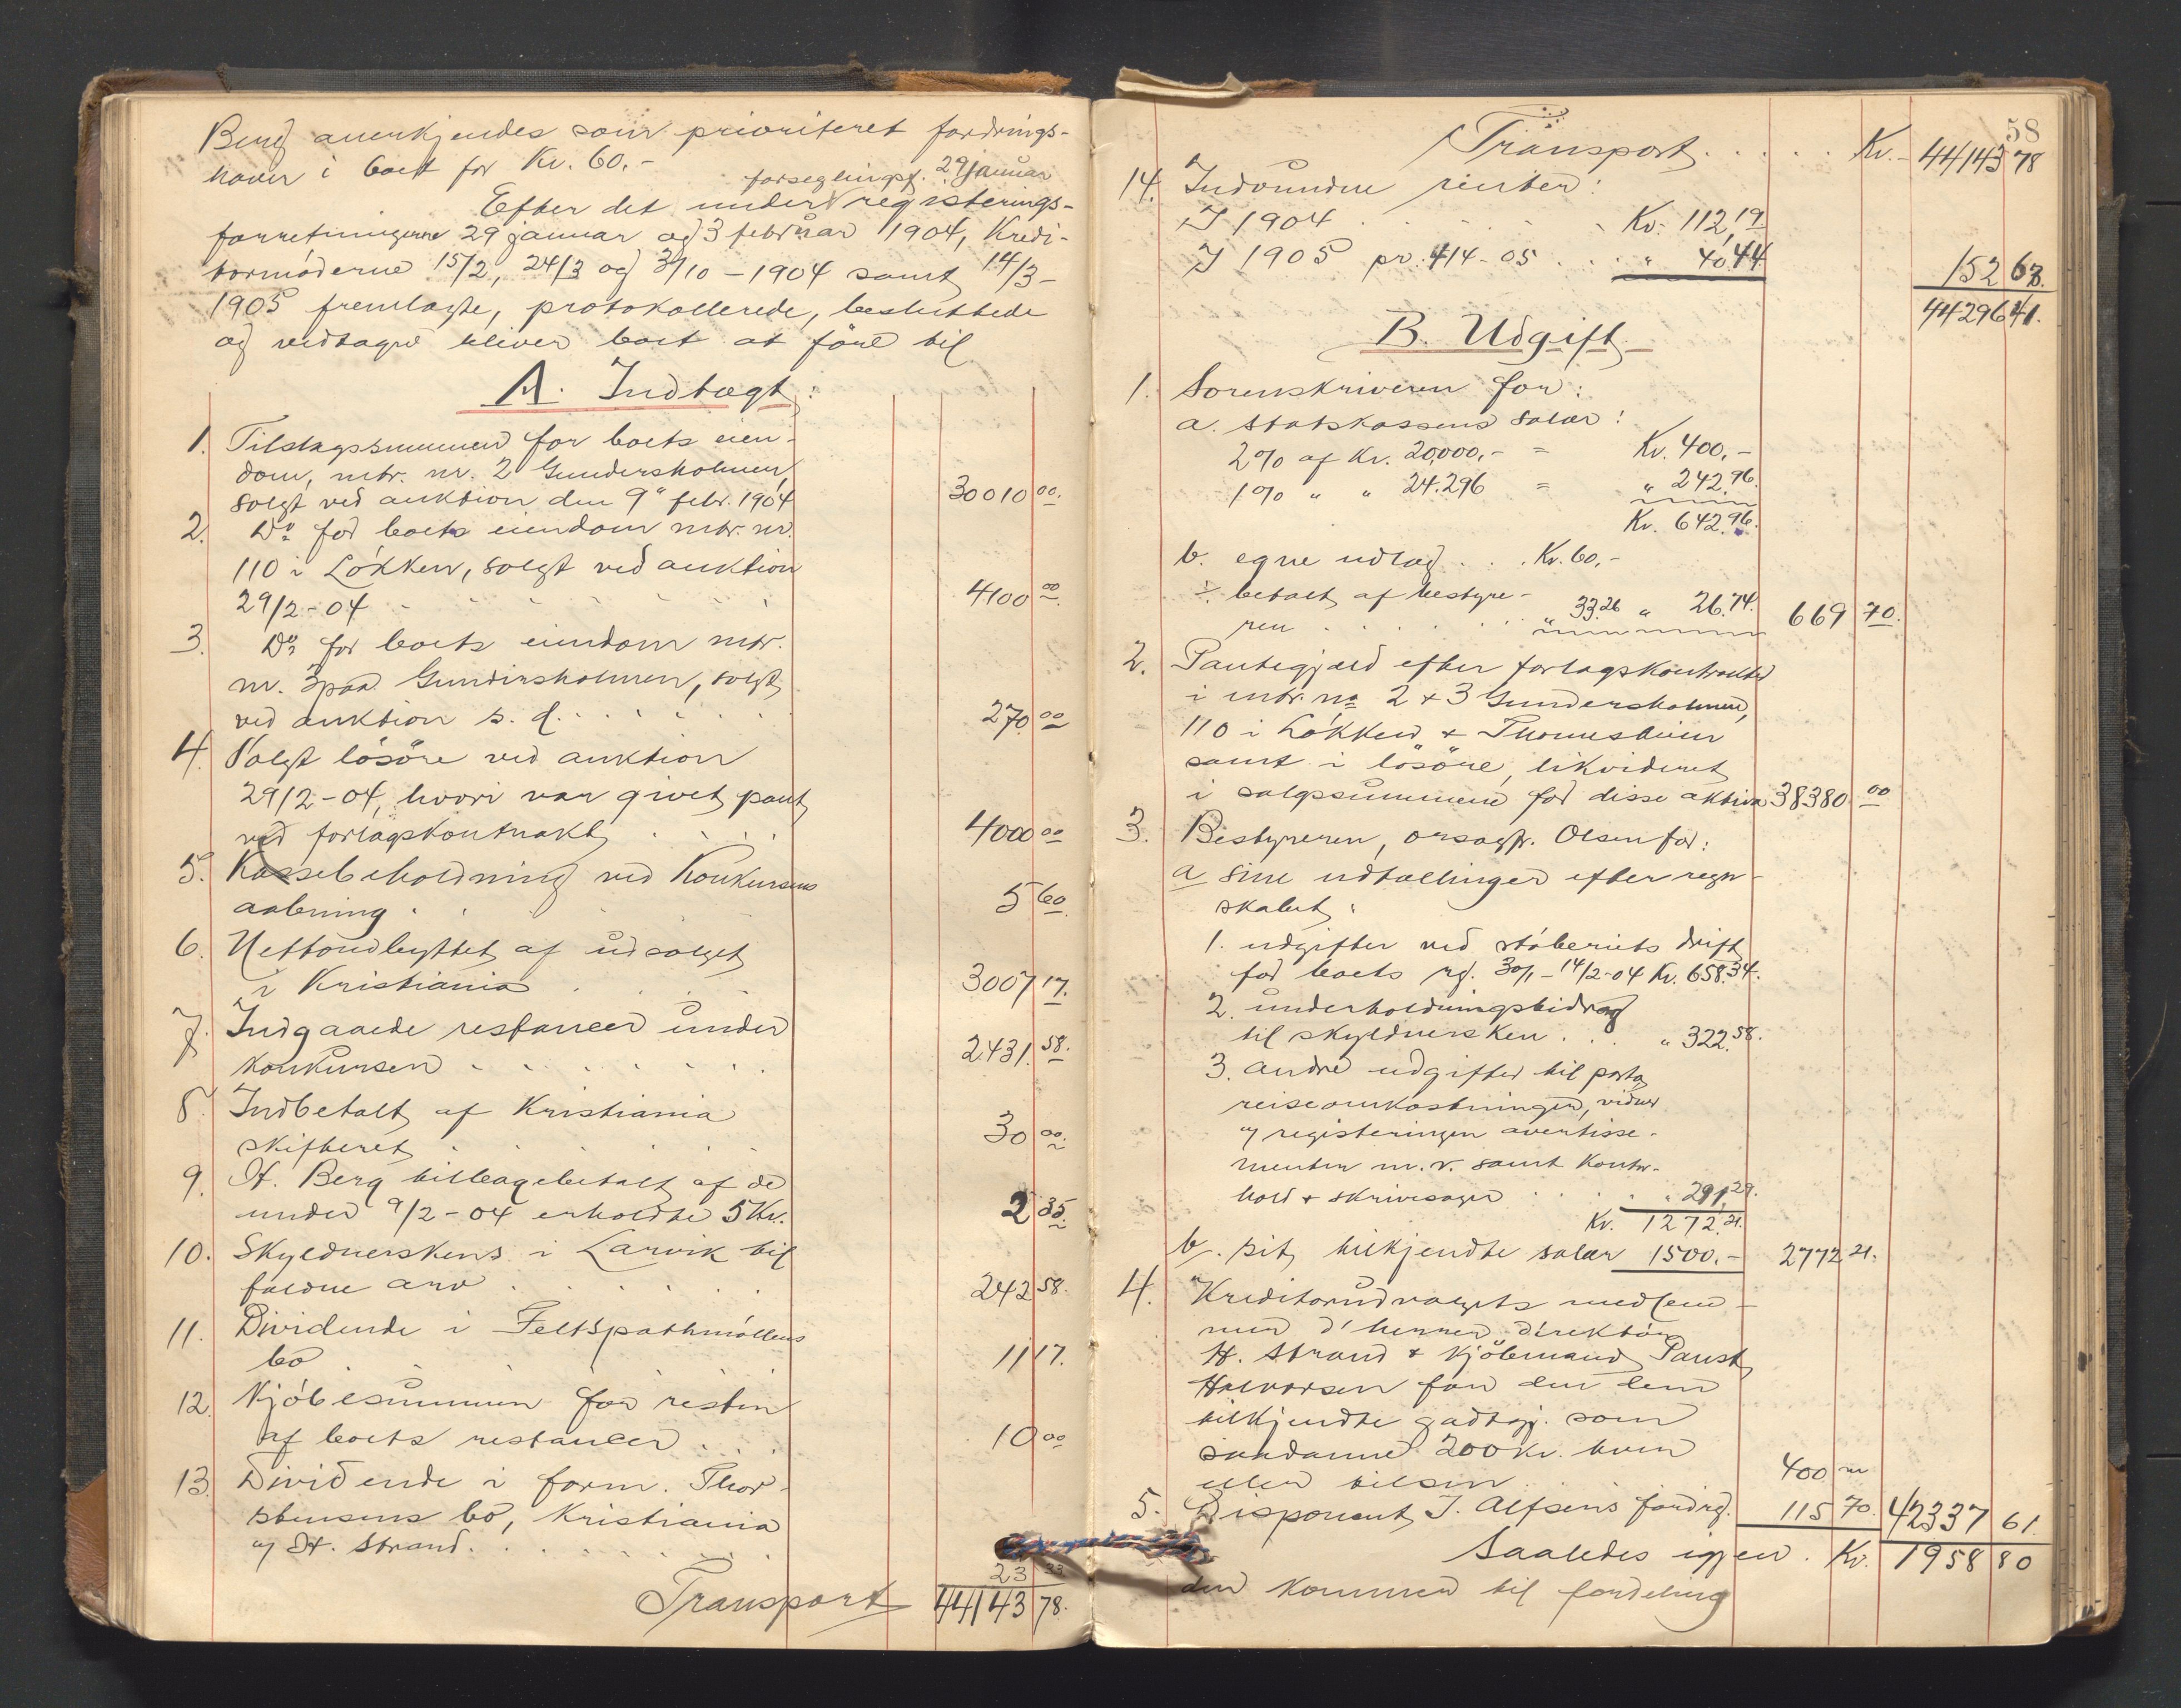 Berg anerkjendes som prioriteret fordrings-
haver i boet for Kr. 60.-
forseglingsf. 29 januar
Efter det under registerings-
forretningerne 29 januar og 3 februar 1904, Kredi-
tormøderne 15/2, 24/3 og 3/10 - 1904 samt 14/3 -
1905 fremlagte, protokollerede, besluttede
og vedtagne bliver boet at före til
A. Indtægt:
1. Tilslagssummen for boets eien-
dom, mtr. nr. 2 Gundersholmen,
solgt ved auktion den 9de febr. 1904 30010 00.
2. Do for boets eiendom mtr. nr.
110 i Løkken, solgt ved auktion
29/2 - 04 . . . . . . 4100 00.
3. Do for boets eiendom mtr.
nr. 3 paa Gundersholmen, solgt
ved auktion s. d. . . . . . 270 00
4. Solgt lösöre ved auktion
29/2 - 04, hvori var givet pant
ved forlagskontrakt . . . . 4000 00
5. Kassebeholdning ved Konkursens
aabning . . 5 60.
6. Nettoudbyttet af udsalget
i Kristiania . . . . 3007 17.
7. Indgaaede restancer under
konkursen . . . . . . . 2431 58.
8. Indbetalt af Kristiania
skifteret . . . . 30 00.
9. H. Berg tilbagebetalt af de
under 9/2 - 04 erholdte 5 Kr. 2 35.
10. Skyldnerskens i Larvik til
faldne arv . . . . . . 242 58.
11. Dividende i Feltspathmøllens
bo . . . . . 11 17.
12. Kjøbesummen for resten
af boets restancer . . . . 10 00
13. Dividende i form. Thor-
stensens bo, Kristiania
v/ H. Strand . . . . . . . 23 33
Transport 44143 78.
58
Transport . . . . . Kr. 44143 78
14. Indvundne renter:
I 1904 . . . . . Kr. 112,19
I 1905 pr. 4/4 - 05 . . . " 40.44 152 63.
44296 41.
B. Udgift.
1. Sorenskriveren for:
a. Statskassens salær:
2% af Kr. 20,000,- = Kr. 400,-
1% " " 24.296 = " 242.96.
Kr. 642.96.
b. egne udlæg . . . Kr. 60,-
÷ betalt af bestyre-
ren . . . . . . " 33.26 " 26.74. 669 70.
2. Pantegjæld efter forlagskontrakter
i mtr. no 2 + 3 Gundersholmen,
110 i Løkken +
samt i lösöre, likvideret
i salgssummene for disse aktiva 38380 00
3. Bestyreren, orsagfr. Olsen for:
a sine udtællinger efter regn-
skabet:
1. udgifter ved støberiets drift
for boets rg. 30/1 - 14/2-04 Kr. 658.34.
2. underholdningsbidrag
til skyldnersken . . . " 322.58.
3. andre udgifter til porto,
reiseomkostninger, vidner
v/ registeringen avertisse-
menter m. v. samt kontor-
hold + skrivesager . . . . " 291,29.
Kr. 1272.21.
b. sit tilkjendte salær 1500.- 2772 21.
4. Kreditorudvalgets medlem-
mer d'herrer direktör
H. Strand + kjöbmand Paust
Halvorsen for den dem
tilkjendte godtgj. som
saadanne 200 kr. hver
eller tilsm. 400 00
5. Disponent J. Alfsens fordrg. 115 70. 42337 61.
Saaledes igjen . Kr. 1958 80
der kommer til fordeling